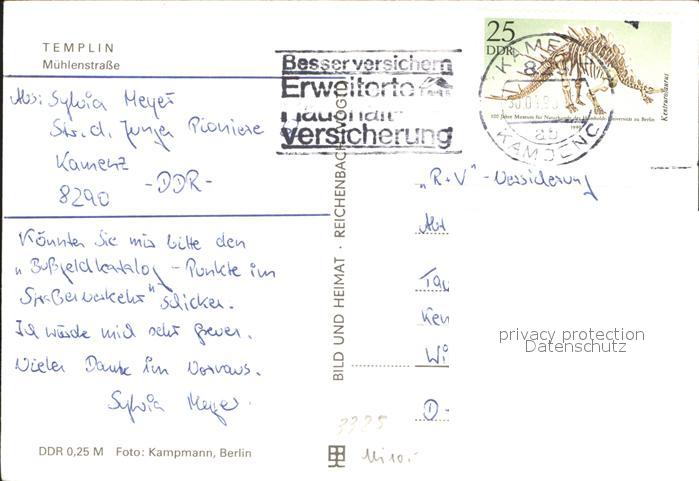 TEMPLIN
Mühlenstraße
Abs: Sylvia Meyer
Str. d. Junge Pioniere
Kamenz
8290 -DDR-
Könnten Sie mir bitte den
„Bußgeldkatalog - Punkte im
Straßenverkehr" schicken.
Ich würde mich sehr freuen.
Vielen Dank im Voraus.
Sylvia Meyer
DDR 0,25 M Foto: Kampmann, Berlin
BILD UND HEIMAT · REICHENBACH · VOGT
3325
Besser versichern
Erweiterte
Haushalt-
versicherung
25
DDR
Kentrurosaurus
100 Jahre Museum für Naturkunde der Humboldt-Universität zu Berlin
1990
KAMENZ
8290
ab
KAMJENC
„R+V"-Versicherung
Abt
Tau
Ken
Wi
D-
privacy protection
Datenschutz